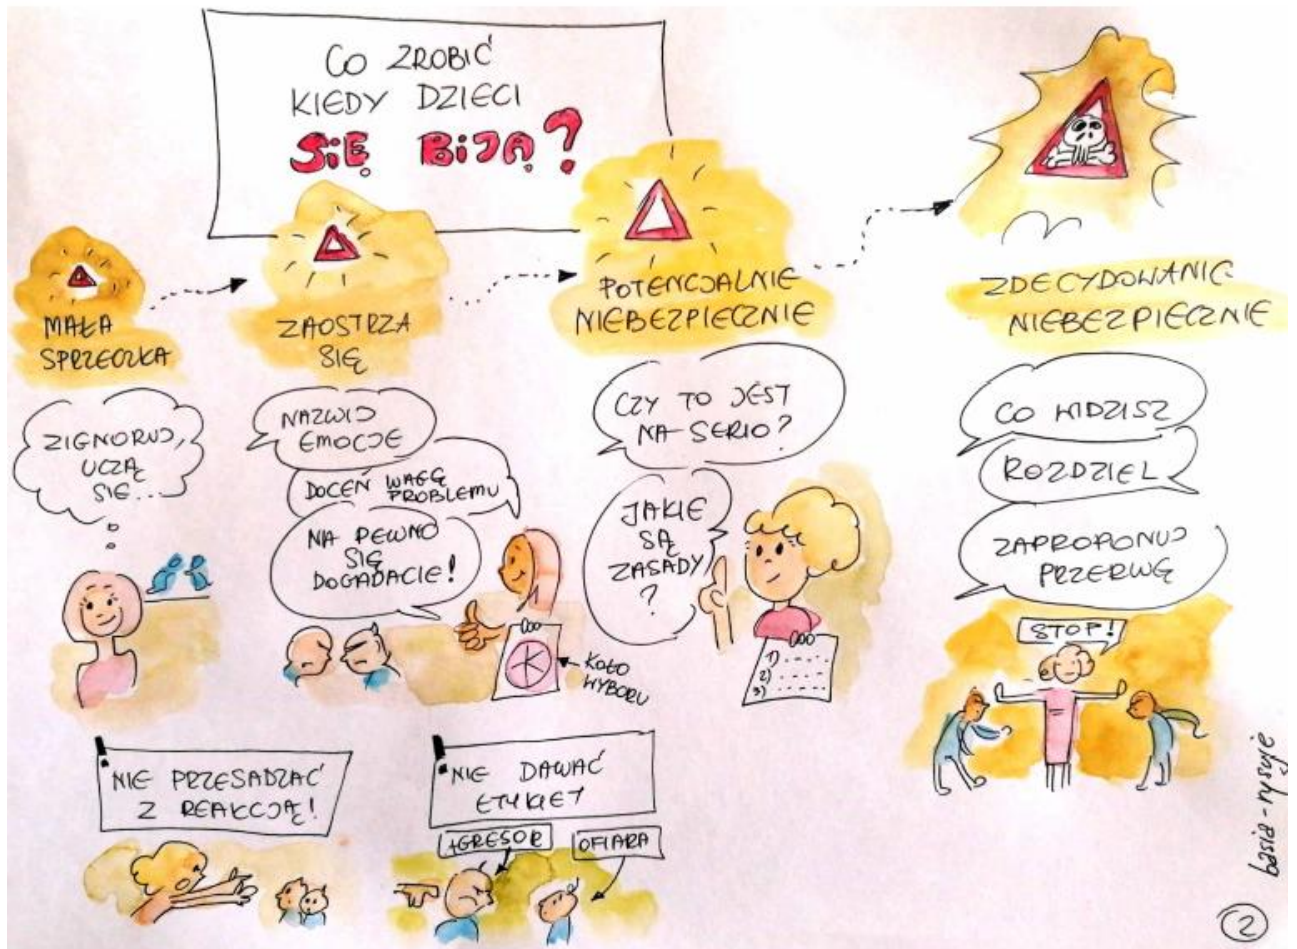 CO ZROBIĆ
KIEDY DZIECI
SIĘ BIJĄ?
MAŁA
SPRZECZKA
ZIGNORUJ,
UCZĄ
SIĘ...
ZAOSTRZA
SIĘ
NAZWIJ
EMOCJE
DOCEŃ WAGĘ
PROBLEMU
NA PEWNO
SIĘ
DOGADACIE!
K
KOŁO
WYBORU
POTENCJALNIE
NIEBEZPIECZNIE
CZY TO JEST
NA SERIO?
JAKIE
SĄ
ZASADY
?
1)
2)
3)
ZDECYDOWANIE
NIEBEZPIECZNIE
CO WIDZISZ
ROZDZIEL
ZAPROPONUJ
PRZERWĘ
STOP!
! NIE PRZESADZAĆ
Z REAKCJĄ!
! NIE DAWAĆ
ETYKIET
AGRESOR
OFIARA
basia-rysuje
2